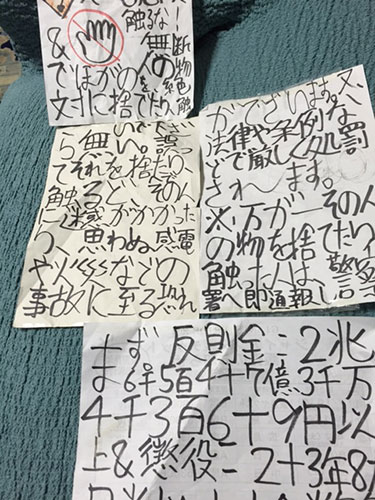 触るな
&
でほかの人の
対に捨てたり、触
無い。
それを捨てたり、
触ると、その人
に迷惑がかかった
り、思わぬ感電
や火災などの
事故に至る恐れ
がございます。又、
法律や条例な
どで厳しく処罰
されます。
※万が一その人
の物を捨てたり、
触った人は、警察
署へ即通報、
まず反則金-2兆
6千5百4十7億3千万
4千3百6十9円以
上&懲役-2十3年8